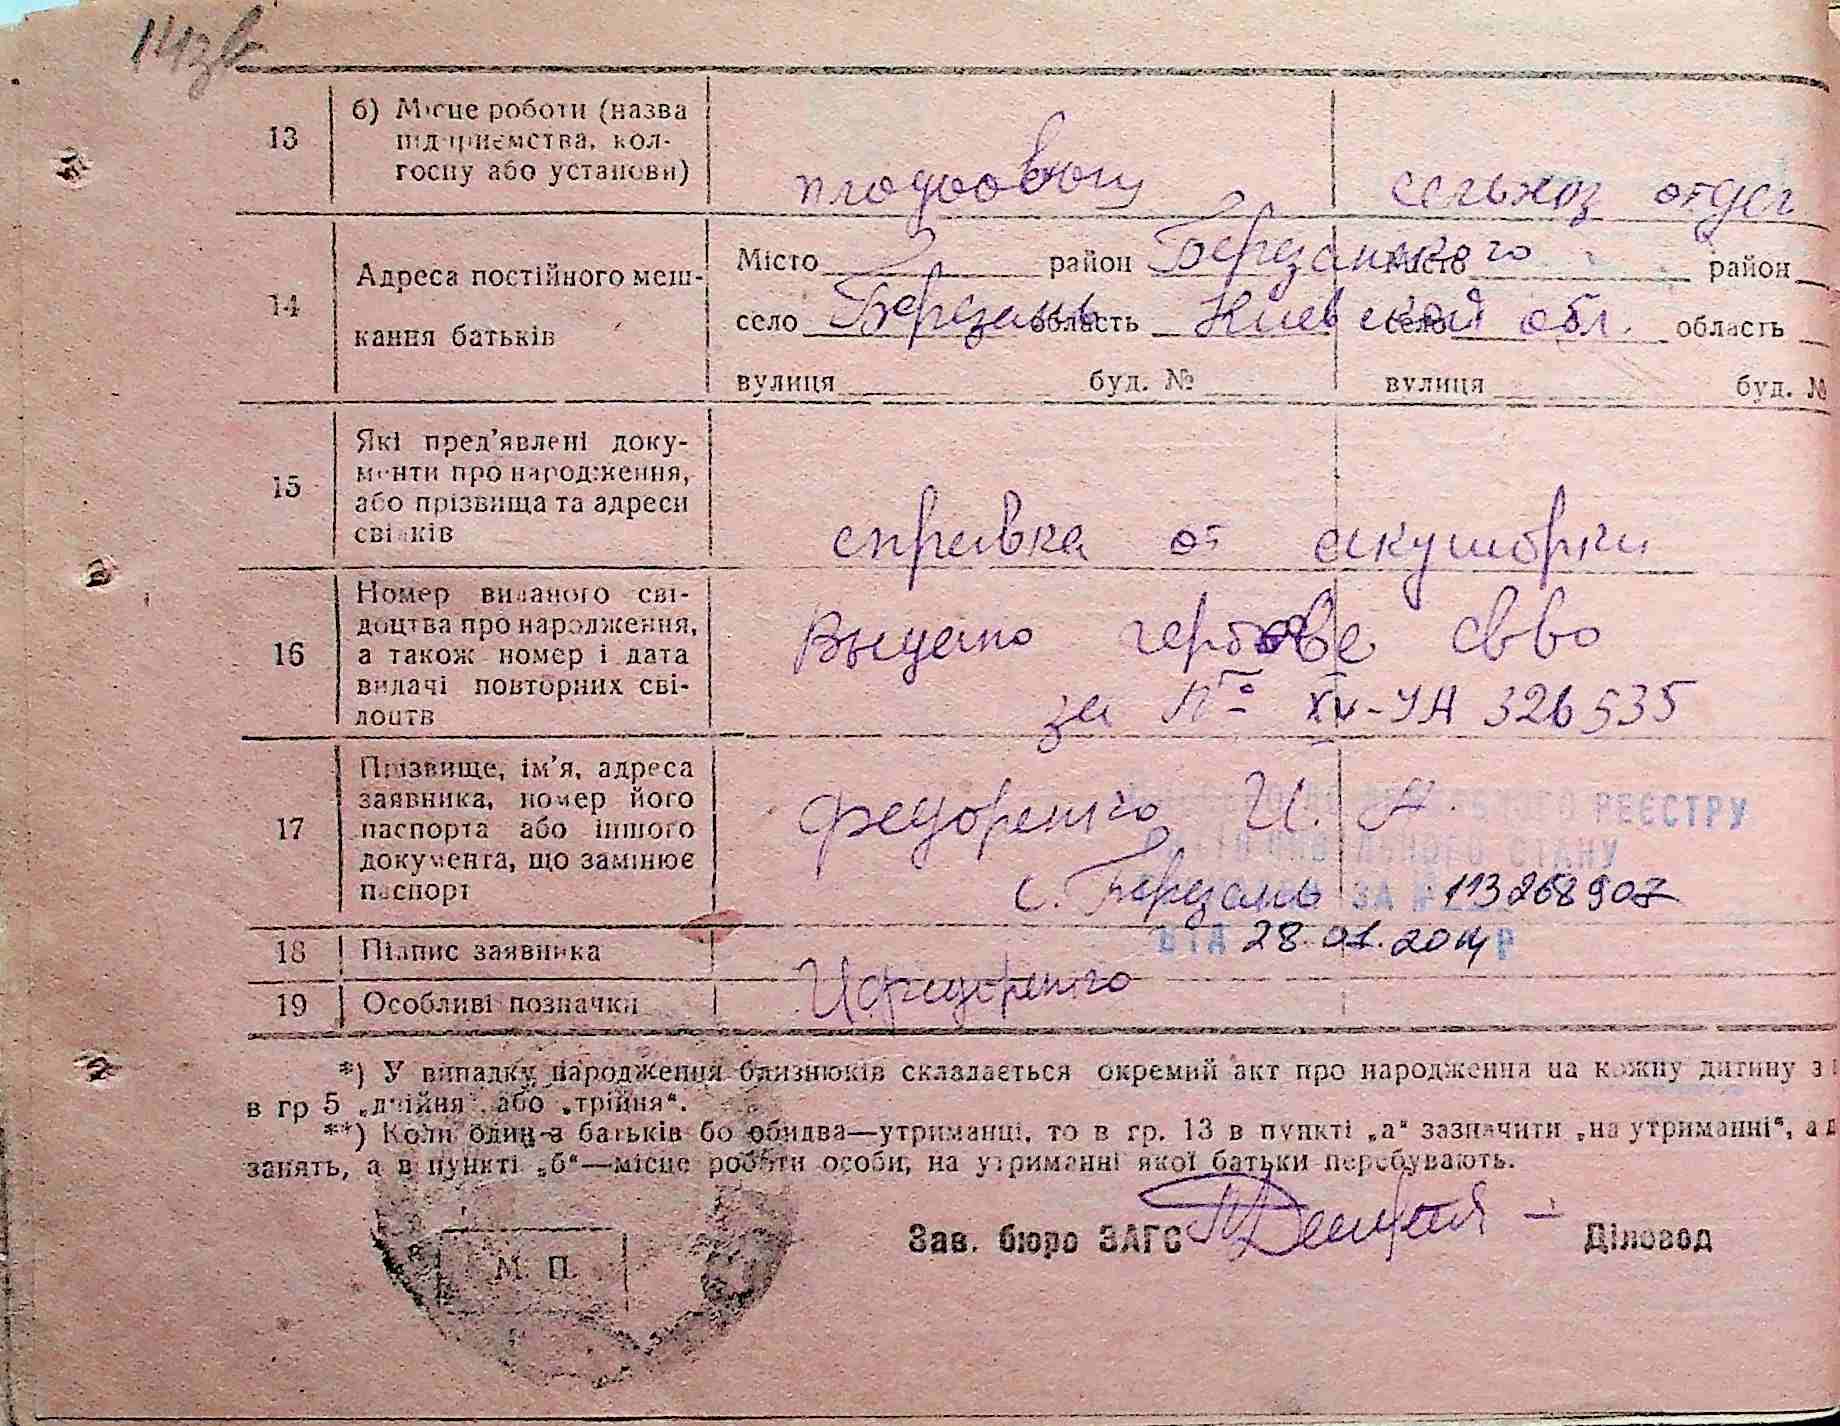 143в
13
б) Місце роботи (назва
підприємства, кол-
госпу або установи)
плодоовощ
сельхоз отдел
14
Адреса постійного меш-
кання батьків
Місто район Березанского місто район
село Березань область Киевской обл. село область
вулиця буд. № вулиця буд. №
15
Які пред'явлені доку-
менти про народження,
або прізвища та адреси
свідків
справка от акушорки
16
Номер виданого сві-
доцтва про народження,
а також номер і дата
видачі повторних сві-
доцтв
Выдано гербове св во
за № XV-УА 326535
17
Прізвище, ім'я, адреса
заявника, номер його
паспорта або іншого
документа, що замінює
паспорт
Федоренко И. А.
с. Березань
РЕЄСТРУ
ЦИВІЛЬНОГО СТАНУ
ЗА № 113268907
ВІД 28.01.2014 Р
18
Підпис заявника
И Федоренко
19
Особливі позначки
*) У випадку народження близнюків складається окремий акт про народження на кожну дитину з
в гр 5 „двійня“ або „трійня“.
**) Коли один з батьків бо обидва—утриманці, то в гр. 13 в пункті „а“ зазначити „на утриманні“, а д
занять, а в пункті „б“—місце роботи особи, на утриманні якої батьки перебувають.
М. П.
Зав. бюро ЗАГС
Діловод